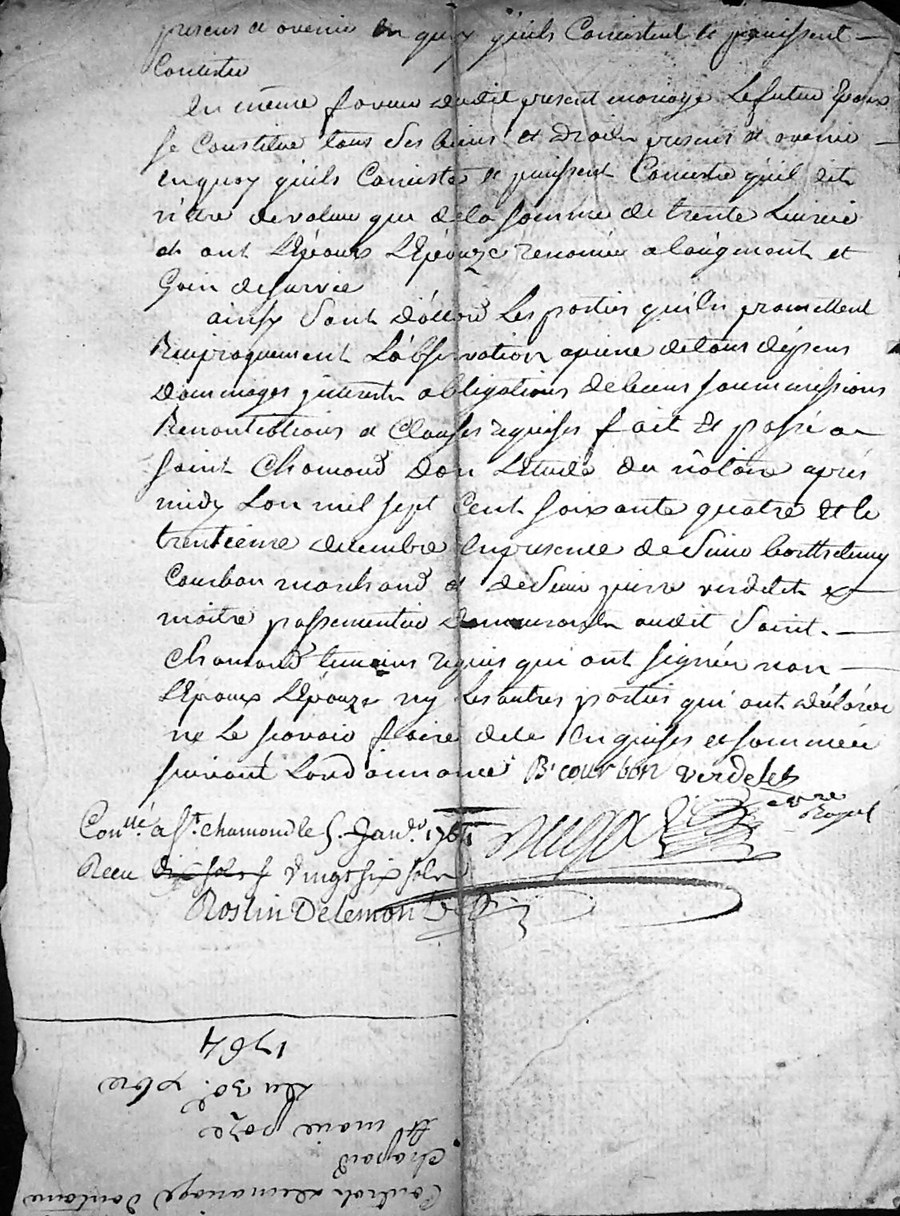 presens et avenir en quoy qu'ils Consistent et puissent
Consister
En même faveur dudit present mariage Le futur Epoux
se Constitue tous ses biens et Droits presens et avenir
en quoy qu'ils Consiste et puissent Consister qu'il dit
n'etre de valeur que de la somme de trente Livres
et ont L'Epoux L'Epouze renoncé a laugment et
Gain de survie
ainsy Sont d'accord Les parties qu'elles promettent
Reciproquement L'observation a peine de tous dépens
Dommages interets obligations de leurs soummissions
Renontiations et Clauses requises fait et passé au
saint Chamond Dan L'Etude du notaire aprés
midy Lan mil sept Cent soixante quatre et le
trentieme decembre En presence de Sieur barthelemy
Courbon marchand et de Sieur pierre verdelet
maitre passementier Demeurants audit Saint
Chamond temoins requis qui ont signée non
L'Epoux L'Epouze ny Les autres parties qui ont déclarée
ne Le savoir faire de ce Enquises et sommées
suivant Lordonnance B. courbon verdelet
nre
Royal
Con.llé a St. chamond le 5. Janv.r 1765
Recu dix sols vingt six sols
Roslin Delemont
1764
du 30e xbre
et marie poze
Chapard
Contrat de mariage d'antoine